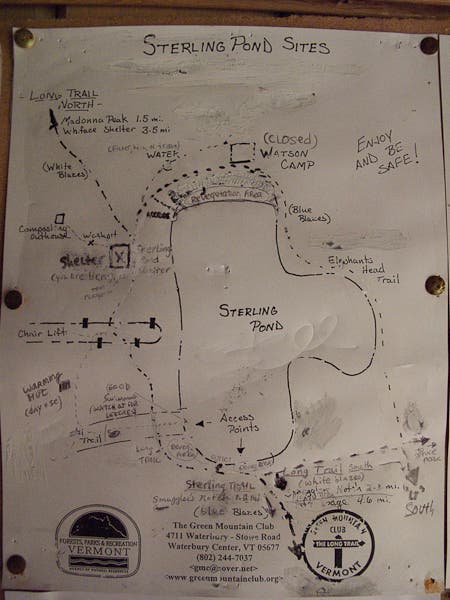 STERLING POND SITES
LONG TRAIL
NORTH -
Madonna Peak 1.5 mi.
Whiface Shelter 3.5 mi.
(White
Blazes)
WATER
(CLOSED)
WATSON
CAMP
ENJOY
AND BE
SAFE!
Revegetation Area
(Blue
Blazes)
Composting
Outhouse
Washpit
Shelter
X
(you are here)
Sterling
Pond
Shelter
Elephants
Head
Trail
STERLING
POND
Chair Lift
WARMING
HUT
(day use)
GOOD
Swimming
(WATCH OUT FOR
LEECHES)
Access
Points
Ski
Trail
Long
TRAIL
Long Trail South
(white blazes)
4.6 mi.
SOUTH
Sterling TRAIL
Smuggler's Notch
(blue Blazes)
The Green Mountain Club
4711 Waterbury - Stowe Road
Waterbury Center, VT 05677
(802) 244-7037
<gmc@sover.net>
<www.greenmountainclub.org>
FORESTS, PARKS & RECREATION
VERMONT
AGENCY OF NATURAL RESOURCES
GREEN MOUNTAIN
CLUB
THE LONG TRAIL
VERMONT